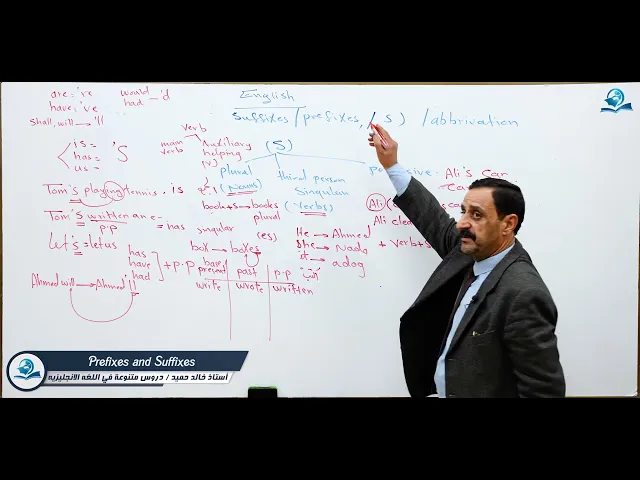 English
Suffixes / prefixes, / S ) / abbrivation
are = 're would _ 'd
have: 've had
shall, will → 'll
is =
has = 'S
us =
verb
main verb
Auxiliary
helping
(v)
(S)
plural
(Nouns)
third person
Singular
(verbs)
Ali's car
Ali
Ali clea
Tom's playing tennis. is
Tom's written are- = has
p.p
Let's = let us
book + s → books
singular plural
(es)
box → boxes
He → Ahmed
She → Nada
it → a dog
+ verb + s
has
have
had
+ p.p
base present past p.p
write wrote written
Ahmed will → Ahmed'll
Prefixes and Suffixes
أستاذ خالد حميد / دروس متنوعة في اللغه الانجليزيه